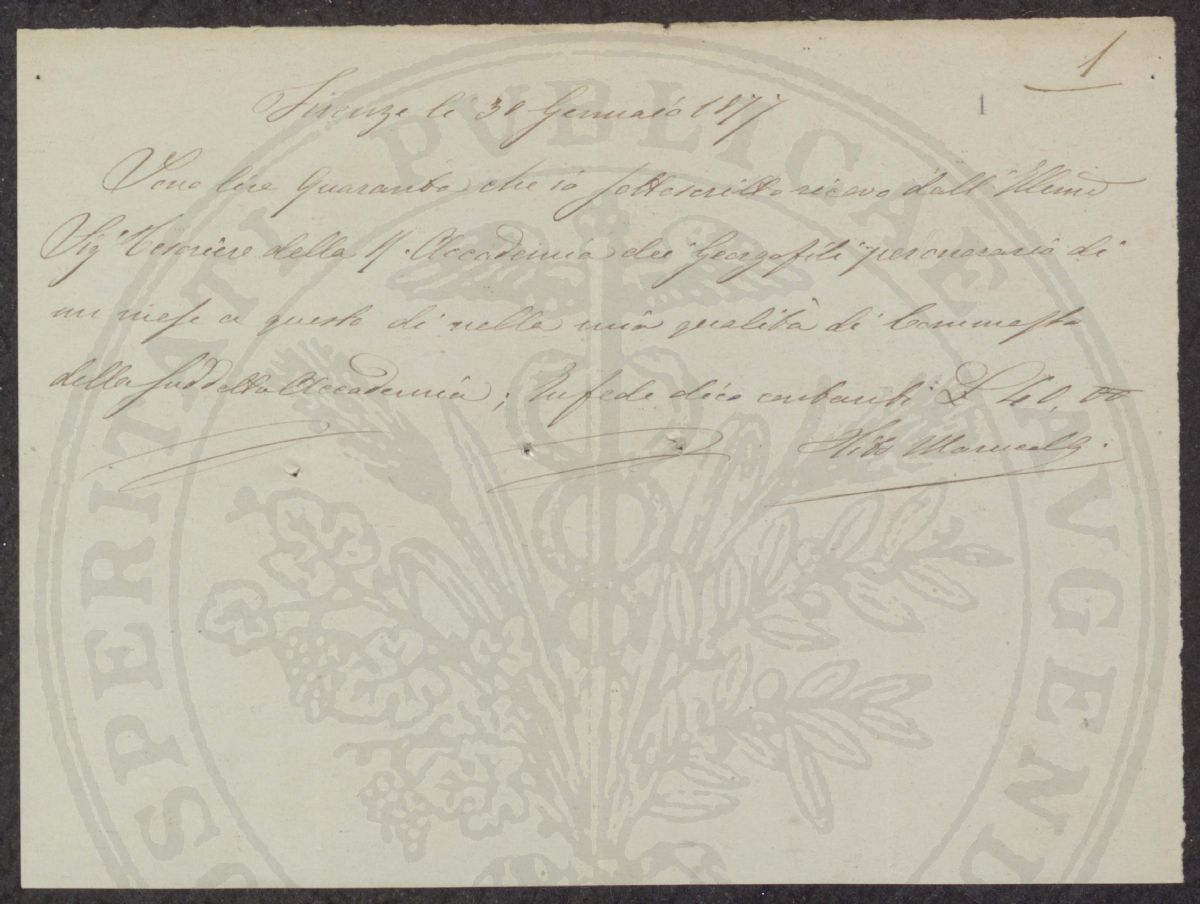 1
1
Firenze li 30 Gennaio 1877
Sono lire Quaranta che io sottoscritto ricevo dall' Illmo
Sigr Tesoriere della R. Accademia dei Georgofili per onorario di
un mese a questo dì nella mia qualità di Commesso
della sudda detta Accademia; In fede dico contanti £ 40,00
Vito Marucelli
PUBLICAE
SPERITATI
AUGEND